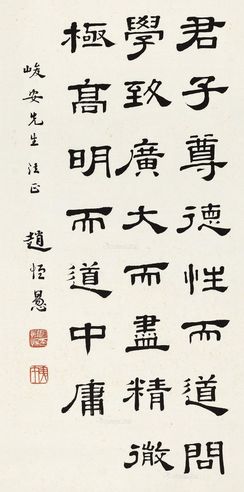 君子尊德性而道問
學致廣大而盡精微
極髙明而道中庸
峻安先生法正 趙恒惖